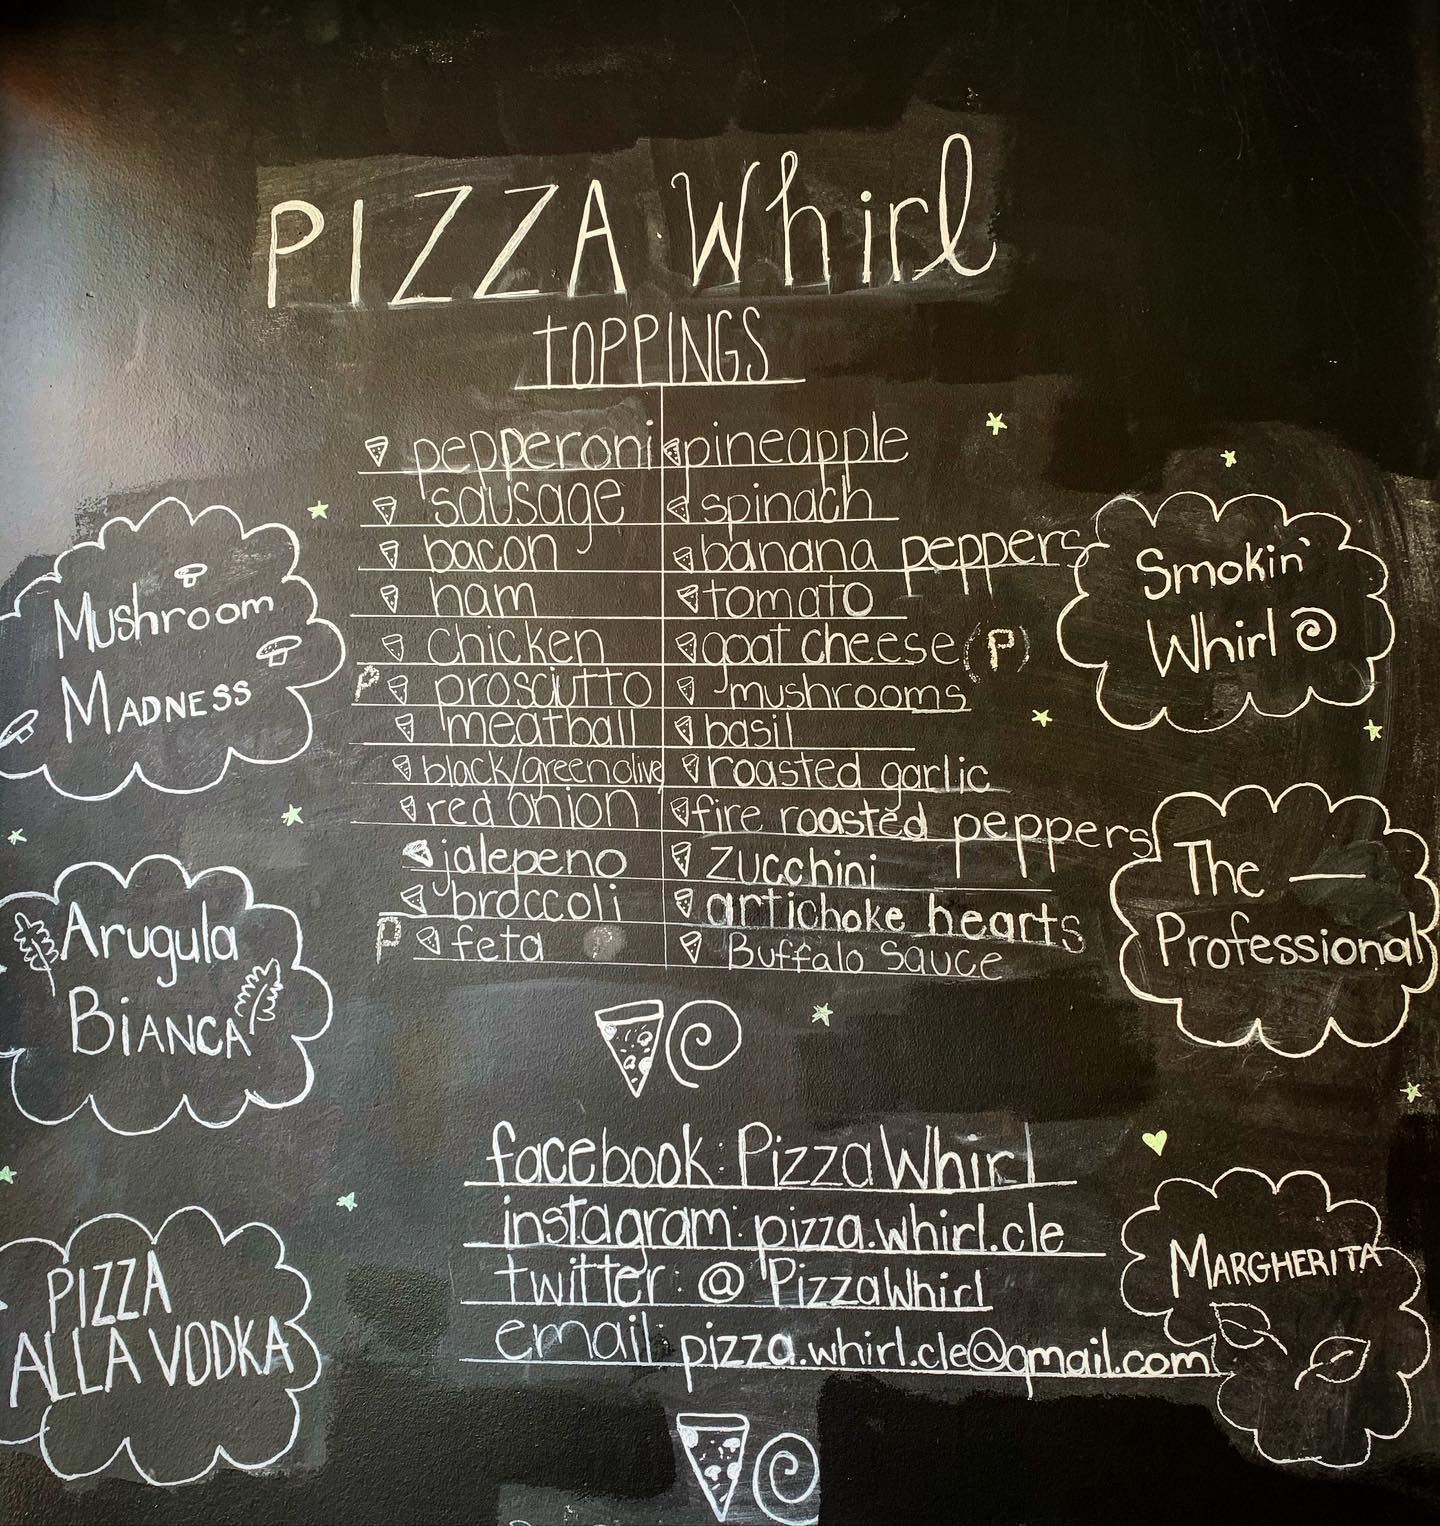 PIZZA Whirl
TOPPINGS
pepperoni
sausage
bacon
ham
chicken
P prosciutto
meatball
black/green olive
red onion
jalepeno
broccoli
P feta
pineapple
spinach
banana peppers
tomato
goat cheese (P)
mushrooms
basil
roasted garlic
fire roasted peppers
zucchini
artichoke hearts
Buffalo Sauce
Mushroom
MADNESS
Arugula
BIANCA
PIZZA
ALLA VODKA
Smokin'
Whirl
The —
Professional
MARGHERITA
facebook: PizzaWhirl
instagram: pizza.whirl.cle
twitter: @PizzaWhirl
email: pizza.whirl.cle@gmail.com